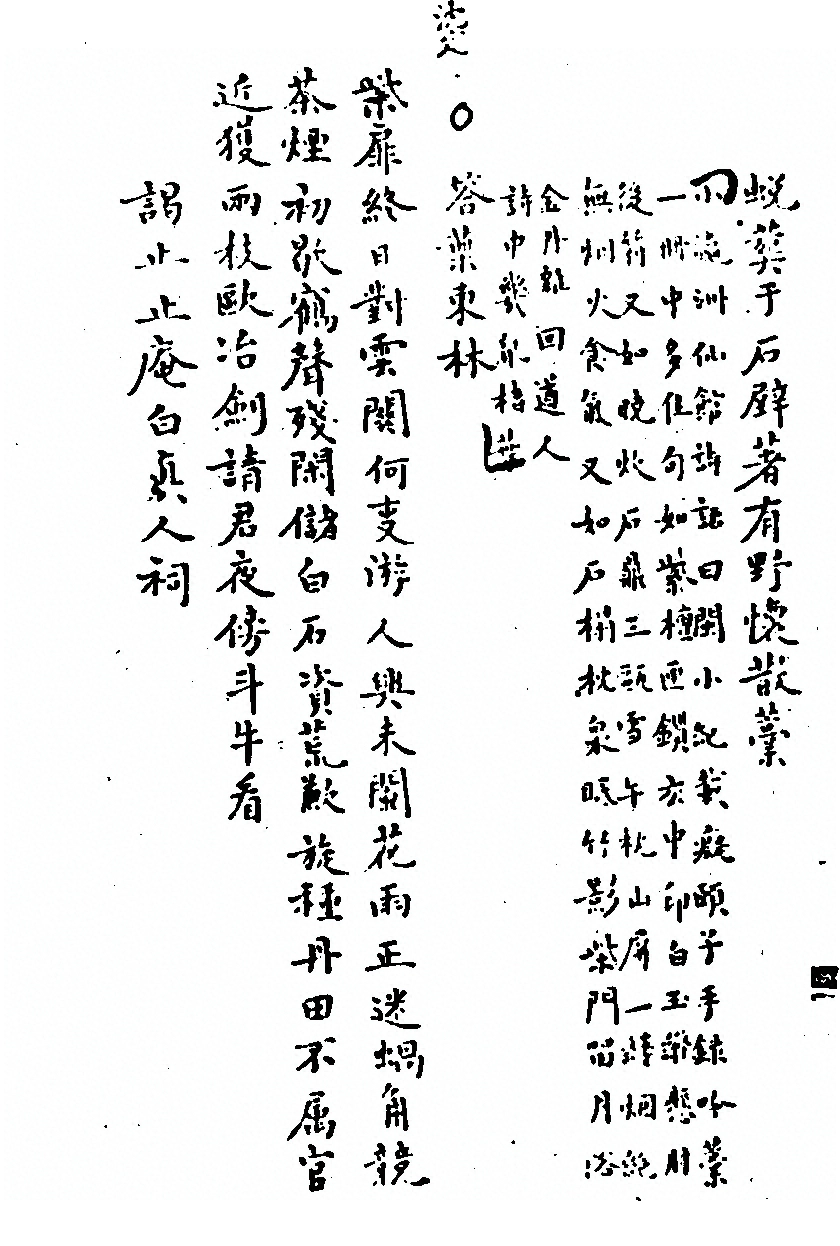 蛻葬于石壁著有野懷散藁
小瀛洲仙館詩話曰閱小紀載癡頤子手録吟藁
一冊中多佳句如紫檀匣鎖方中印白玉鈎懸肘
後符又如曉炊石鼎三瓶雪午枕山屏一縷烟絶
無烟火食氣又如石榻枕泉眠竹影柴門留月浴
金丹雖回道人
詩中幾
答葉東林
柴扉終日對雲關何吏游人興未闌花雨正迷蝸角競
茶煙初歇鶴聲殘閑儲白石資荒歉旋種丹田不属官
近獲兩枝歐冶劍請君夜傍斗牛看
謁止止庵白真人祠